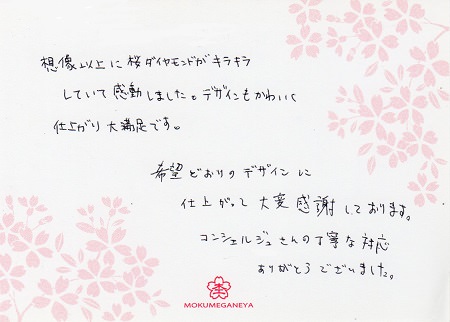 想像以上に桜ダイヤモンドがキラキラ
していて感動しました。デザインもかわいく
仕上がり大満足です。
希望どおりのデザインに
仕上がって大変感謝しております。
コンシェルジュさんの丁寧な対応
ありがとうございました。
MOKUMEGANEYA